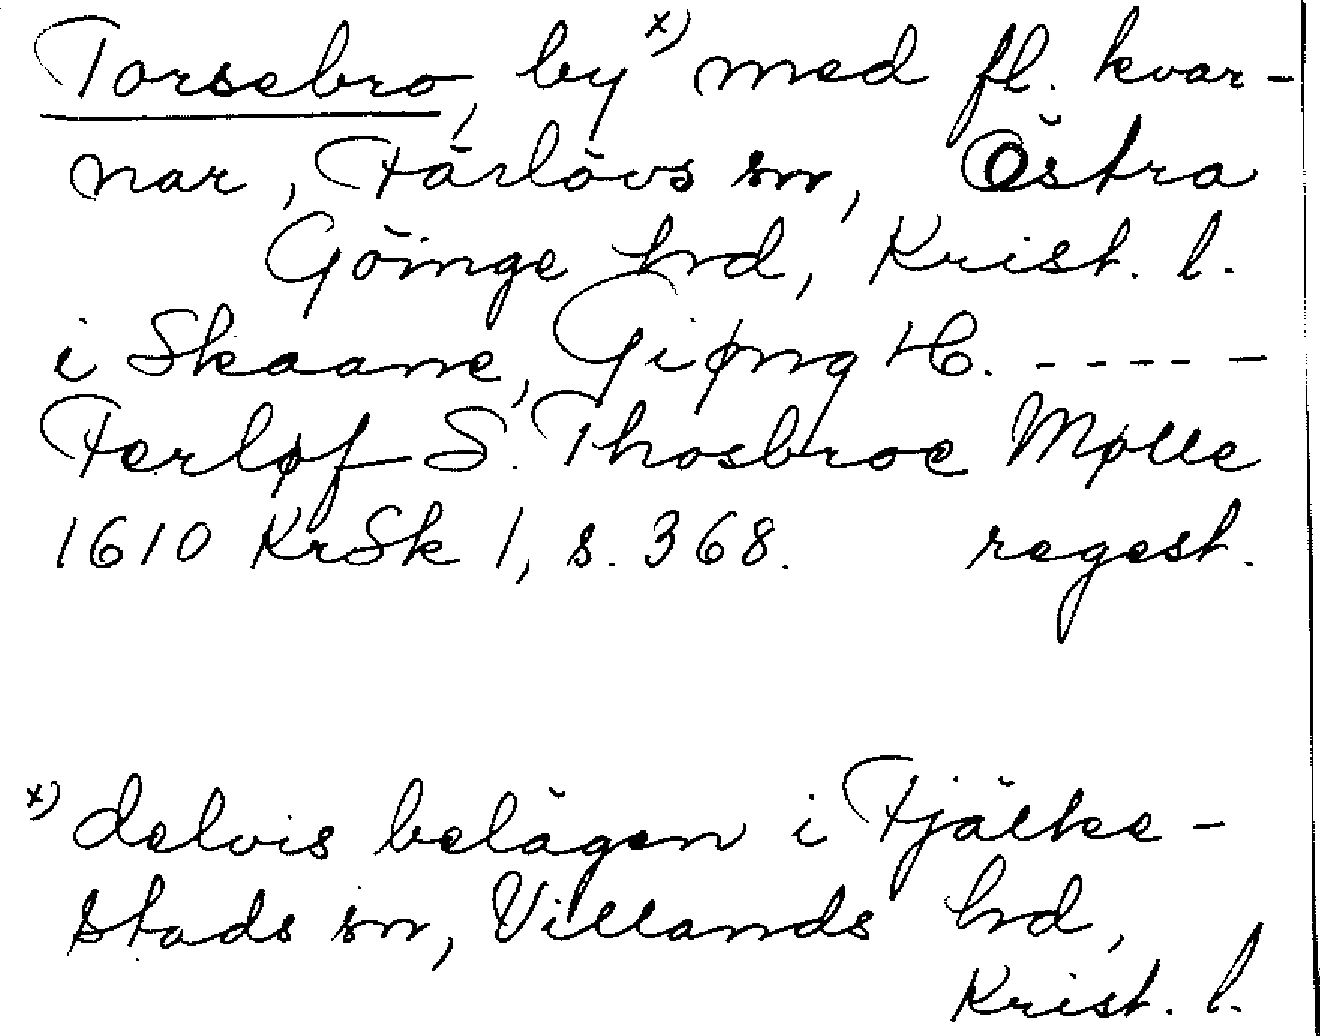 Torsebro, by x) med fl. kvar-
nar, Färlövs sn, Östra
Göinge hrd, Krist. l.
i Skaane, Giøng H. - - - - -
Ferløf S. Thosbroe Mølle
1610 KrSk 1, s. 368. regest.
x) delvis belägen i Fjälke-
stads sn, Villands hrd,
Krist. l.